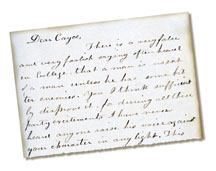 Dear Cayce,
There is a very false
and very foolish saying often heard
in College, that a man is most
of a man unless he has some bit
ter enemies. You I think sufficient
ly disprove it, for during all these
party excitements I have never
heard anyone raise his voice against
your character in any light. This